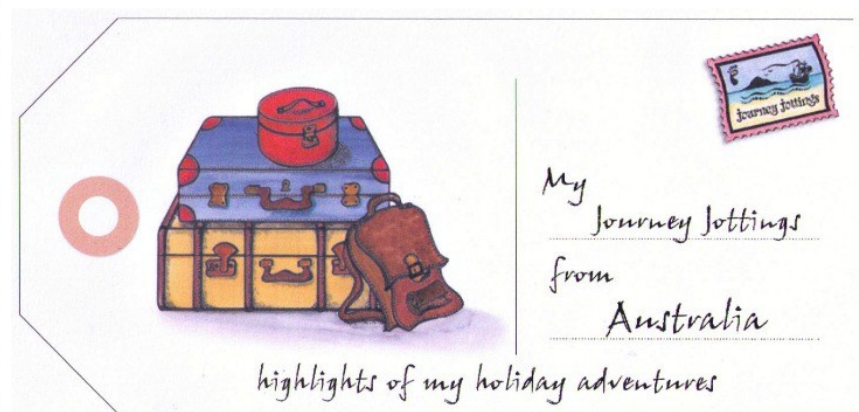 journey jottings
My
Journey Jottings
from
Australia
highlights of my holiday adventures